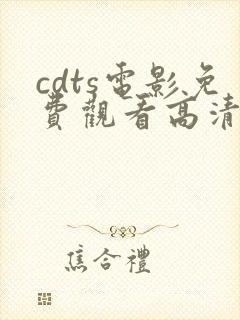 cdts電影免
費觀看高清
焦合禮